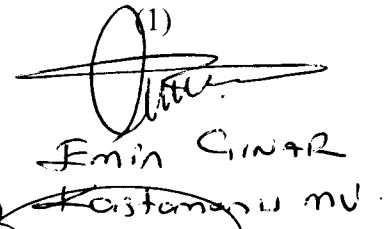 (1)
Emin ÇINAR
Kastamonu mv.